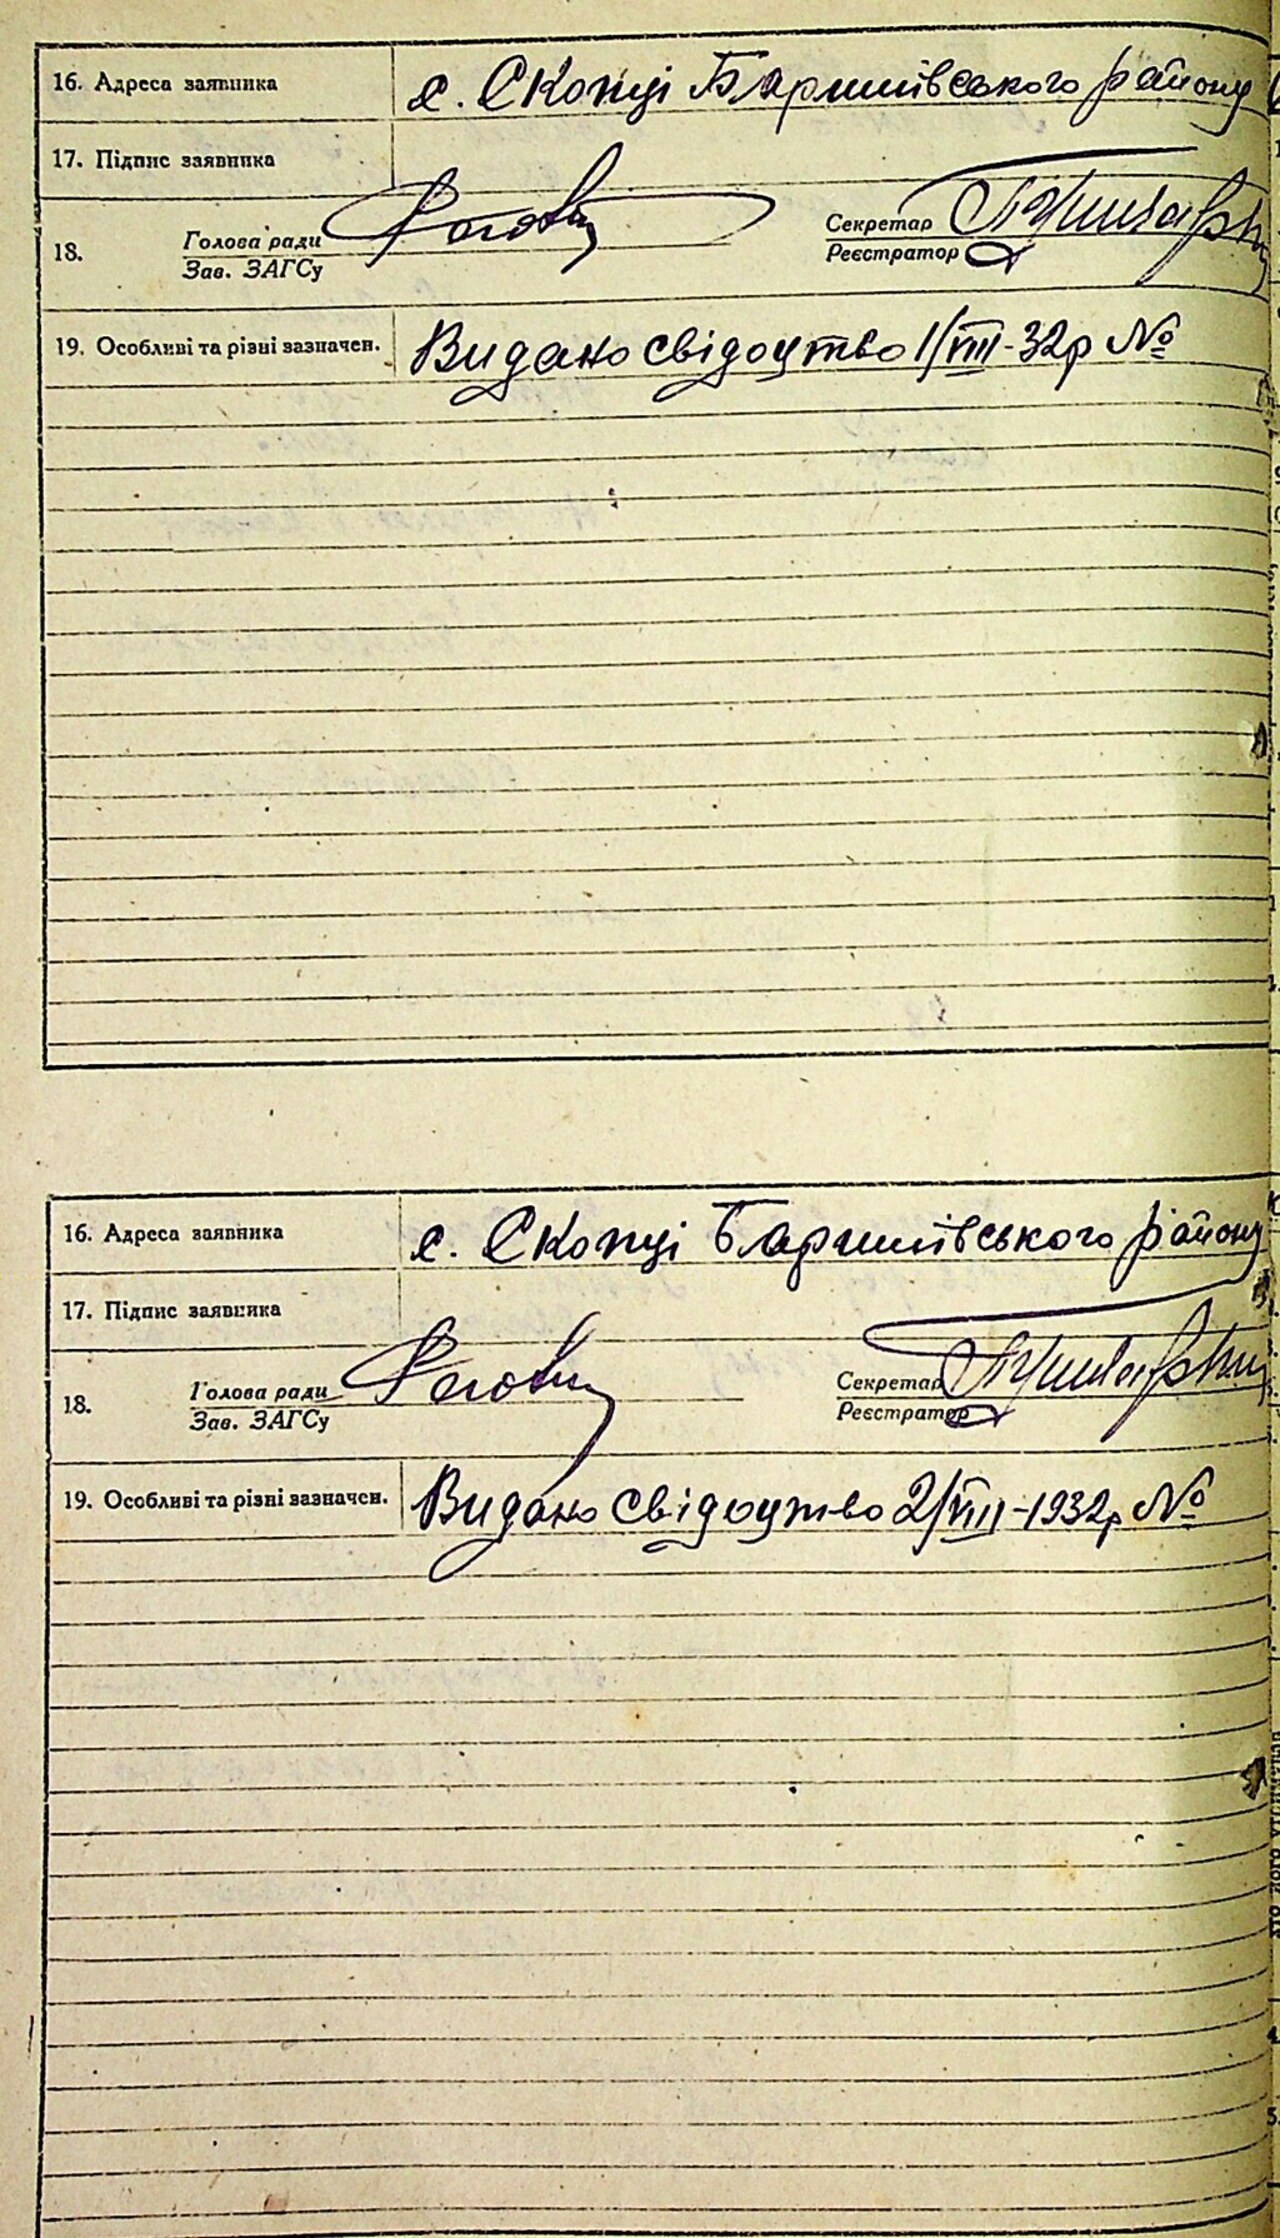 16. Адреса заявника с. Скопці Баришівського району
17. Підпис заявника
18. Голова ради Секретар
Зав. ЗАГСу Реєстратор
19. Особливі та різні зазначен. Видано свідоцтво 1/VIII-32р №
16. Адреса заявника с. Скопці Баришівського району
17. Підпис заявника
18. Голова ради Секретар
Зав. ЗАГСу Реєстратор
19. Особливі та різні зазначен. Видано свідоцтво 2/VIII-1932р №